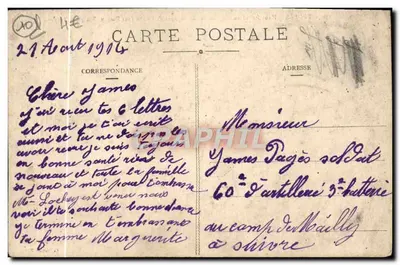 10
4€
CARTE POSTALE
21 Aout 1914
CORRESPONDANCE
ADRESSE
Chère James
j'ai recu tes 6 lettres
et moi je t'ai ecrit
aussi et tu ne dois pas les
avoir recu je suis toujours
en bonne santé rien de
nouveau et toute la famille
se joint à moi pour t'embrasser
Mr est venu nous
voir il te souhaite bonne chance
je termine en t'embrassant
ta femme Marguerite
Monsieur
James Pagès soldat
60e d'artillerie 3e batterie
au camp de Mailly
à suivre